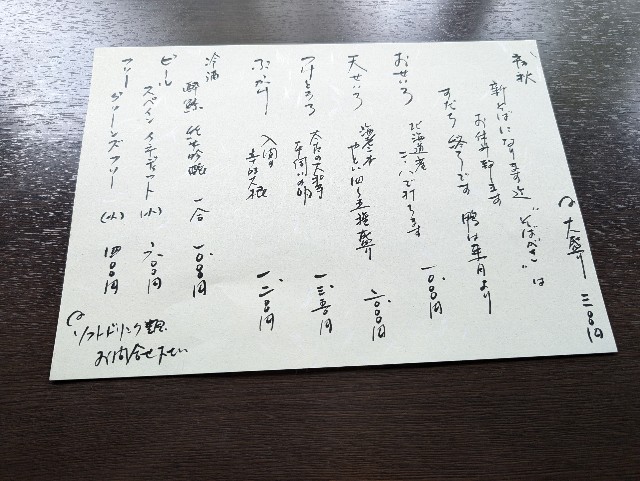 大盛り 三〇〇円
初秋
新そばになります迄 "そばがき" は
お休み致します
すだち 終了です 鴨は来月より
おせいろ 北海道産 二八で打ちます 一〇〇〇円
天せいろ 海老二本 やさい四〜五種盛り 二〇〇〇円
つけとろろ 一三〇〇円
ぶっかけ 入間の 辛味大根 一二〇〇円
冷酒 純米吟醸 一合 一〇〇〇円
ビール スペイン イネディット (小) 六〇〇円
フリー グリーンズフリー (小) 四〇〇円
ソフトドリンク類
お問合せ下さい